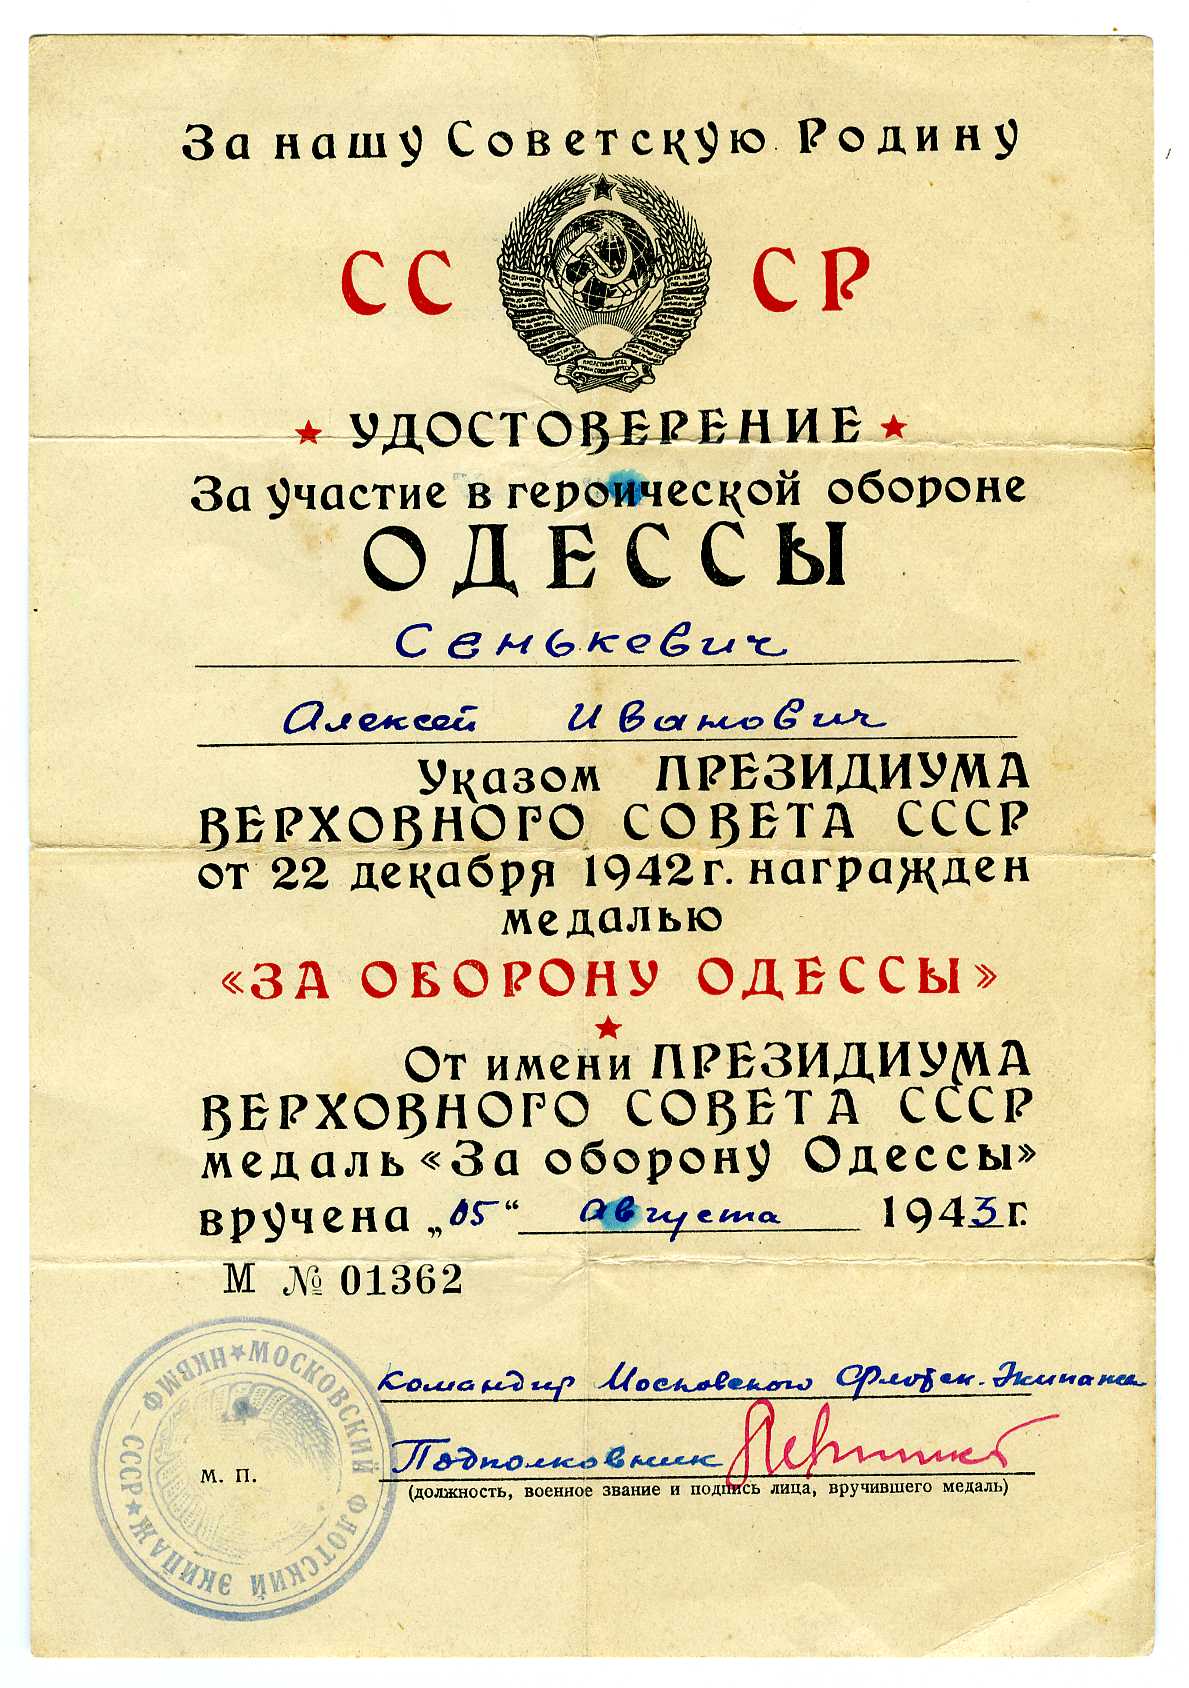 За нашу Советскую Родину
СССР
УДОСТОВЕРЕНИЕ
За участие в героической обороне
ОДЕССЫ
Сенькевич
Алексей Иванович
Указом ПРЕЗИДИУМА
ВЕРХОВНОГО СОВЕТА СССР
от 22 декабря 1942 г. награжден
медалью
«ЗА ОБОРОНУ ОДЕССЫ»
От имени ПРЕЗИДИУМА
ВЕРХОВНОГО СОВЕТА СССР
медаль «За оборону Одессы»
вручена „05“ Августа 1943 г.
М № 01362
Командир Московского Флотск. Экипажа
Подполковник
М. П.
(должность, военное звание и подпись лица, вручившего медаль)
НКВМФ – СССР ★ МОСКОВСКИЙ ФЛОТСКИЙ ЭКИПАЖ ★